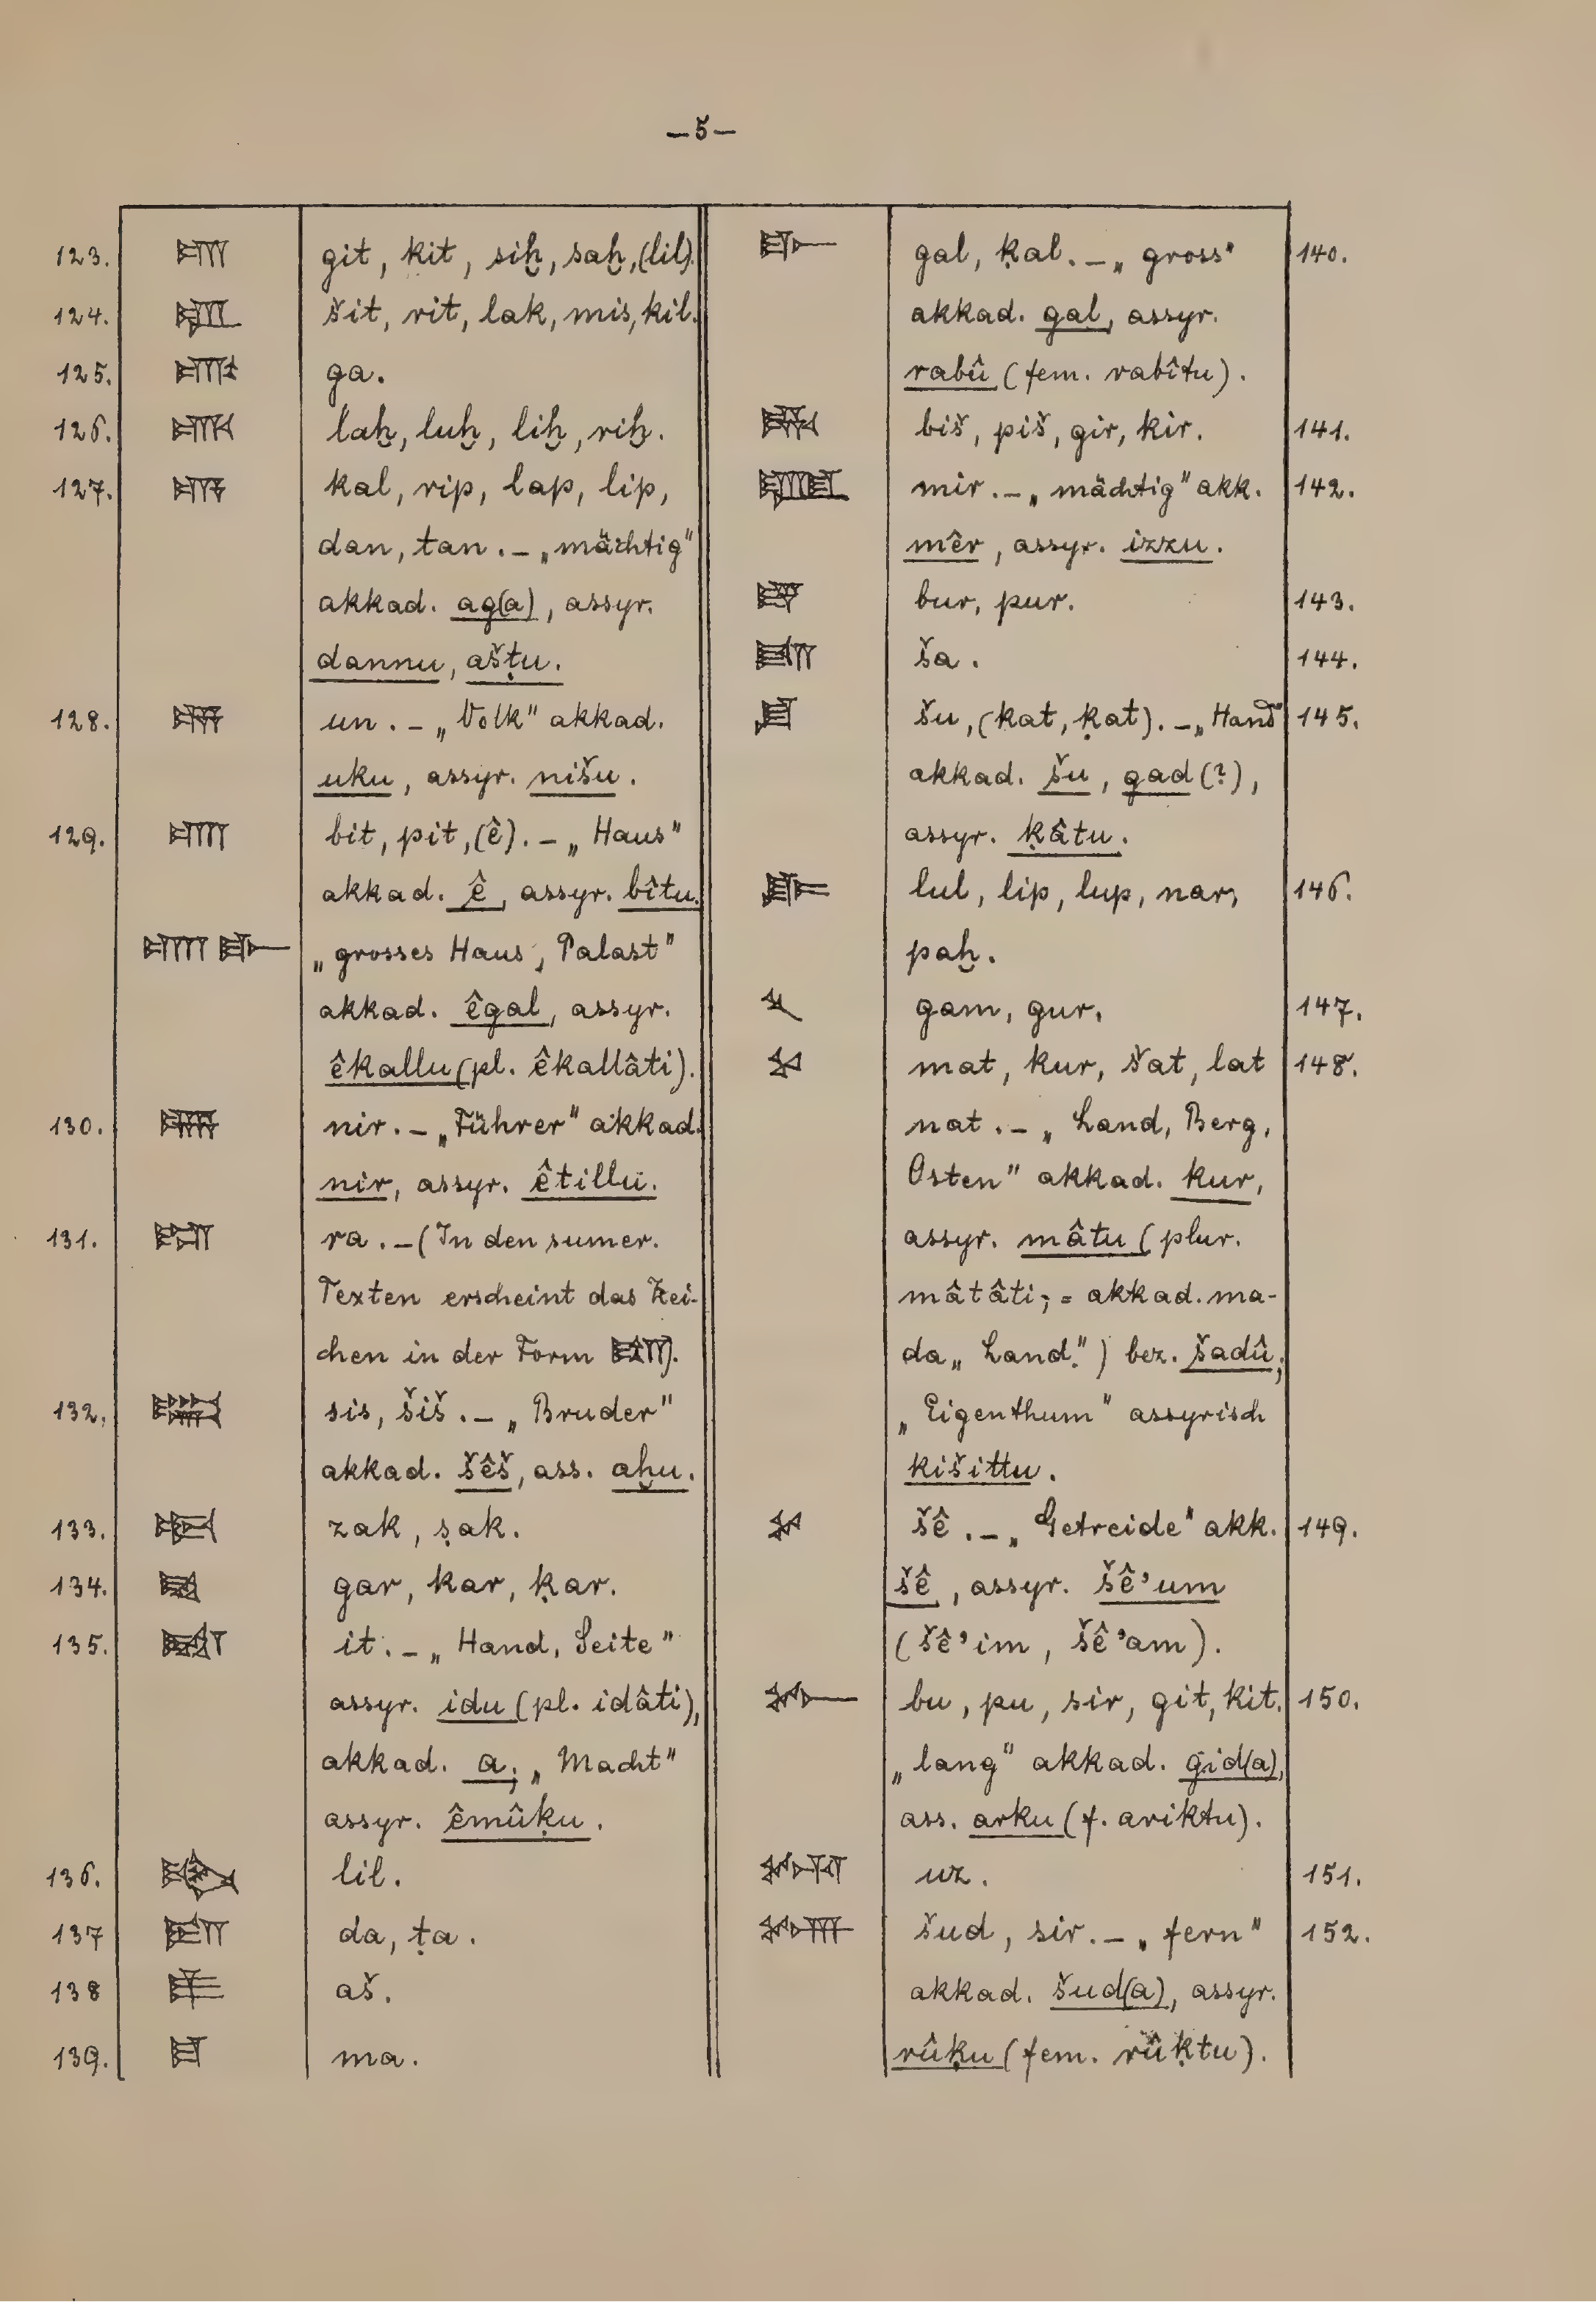 —5—
123. git, kit, siḫ, saḫ, (lil).
124. šit, rit, lak, mis, kil.
125. ga.
126. laḫ, luḫ, liḫ, riḫ.
127. kal, rip, lap, lip,
dan, tan. — „mächtig"
akkad. ag(a), assyr.
dannu, ašṭu.
128. un. — „Volk" akkad.
uku, assyr. nišu.
129. bit, pit, (ê). — „Haus"
akkad. ê, assyr. bîtu.
„grosses Haus, Palast"
akkad. êgal, assyr.
êkallu (pl. êkallâti).
130. nir. — „Führer" akkad.
nir, assyr. êtillu.
131. ra. — (In den sumer.
Texten erscheint das Zei-
chen in der Form 𒊏).
132. sis, šiš. — „Bruder"
akkad. šêš, ass. aḫu.
133. zak, ṣak.
134. gar, kar, ḳar.
135. it. — „Hand, Seite"
assyr. idu (pl. idâti),
akkad. a; „Macht"
assyr. êmûḳu.
136. lil.
137 da, ṭa.
138 aš.
139. ma.
gal, ḳal. — „gross" 140.
akkad. gal, assyr.
rabû (fem. rabîtu).
biš, piš, gir, kir. 141.
mir. — „mächtig" akk. 142.
mêr, assyr. izzu.
bur, pur. 143.
ša. 144.
šu, (kat, ḳat). — „Hand" 145.
akkad. šu, gad (?),
assyr. ḳâtu.
lul, lip, lup, nar, 146.
paḫ.
gam, gur. 147.
mat, kur, šat, lat 148.
nat. — „Land, Berg,
Osten" akkad. kur,
assyr. mâtu (plur.
mâtâti; = akkad. ma-
da „Land.") bez. šadû;
„Eigenthum" assyrisch
kišittu.
šê. — „Getreide" akk. 149.
šê, assyr. šê'um
(šê'im, šê'am).
bu, pu, sir, git, kit. 150.
„lang" akkad. gid(a),
ass. arku (f. ariktu).
uz. 151.
šud, sir. — „fern" 152.
akkad. šud(a), assyr.
rûḳu (fem. rûḳtu).